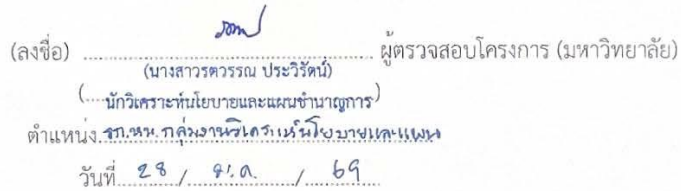 (ลงชื่อ) ........................................ ผู้ตรวจสอบโครงการ (มหาวิทยาลัย)
(นางสาวรตวรรณ ประวิรัตน์)
(....นักวิเคราะห์นโยบายและแผนชำนาญการ)
ตำแหน่ง รก.หน.กลุ่มงานวิเคราะห์นโยบายและแผน
วันที่ 28 / / 69